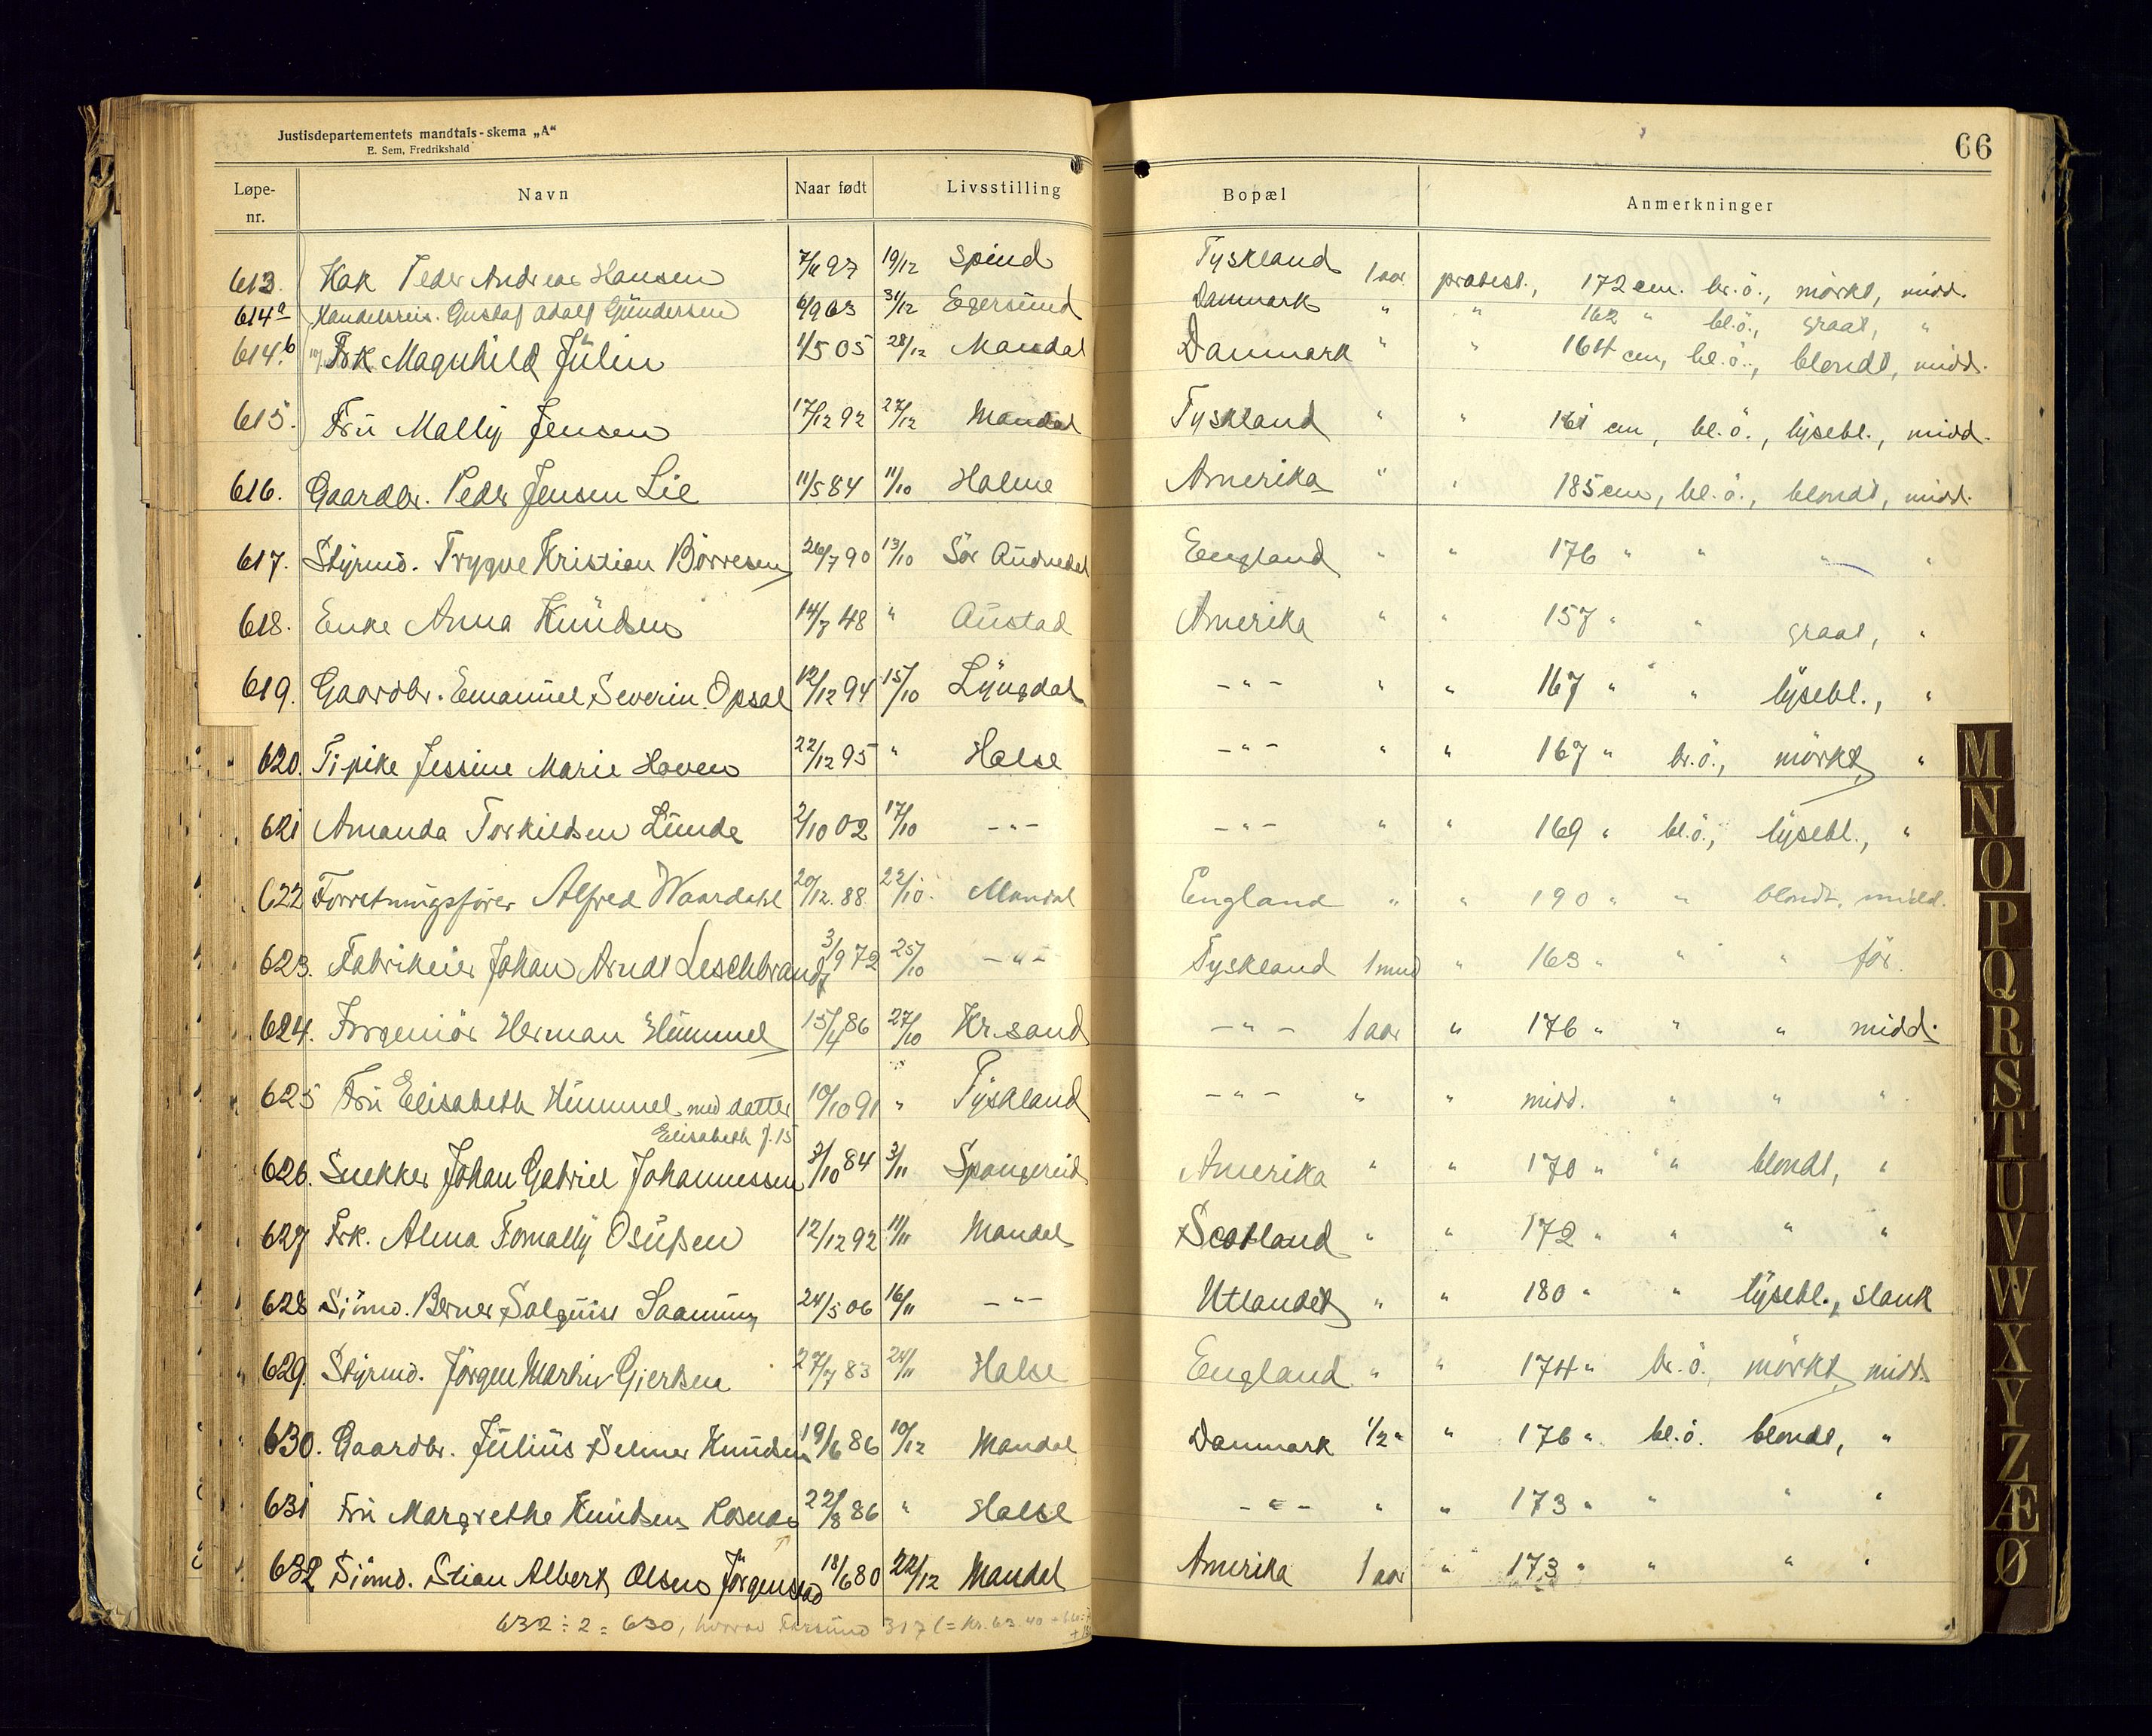 Justisdepartementets mandtals-skema „A“
E. Sem, Fredrikshald
66
Løpe-nr. Navn Naar født Livsstilling Bopæl Anmerkninger
613. Peder Andreas Hansen 97 19/12 Spind Tyskland 1 aar protest., 172 cm. br.ö., mörkt, midd.
614a Handelsreis. Gustaf Adolf Gundersen 6/9 63 31/12 Egersund Danmark " " 162 " bl.ö., graat, "
614.b Frk Magnhild Julin 1/5 05 28/12 Mandal Danmark " " 164 cm, bl.ö., blondt, midd.
615. Fru Mally Jensen 17/12 92 27/12 Mandal Tyskland " " 161 cm, bl.ö., lysebl., midd.
616. Gaardbr. Peder Jensen Lie 11/5 84 11/10 Holme Amerika " " 185 cm, bl.ö., blondt, midd.
617. Styrmd. Trygve Kristian Börresen 26/7 90 13/10 Sör Audnedal England " " 176 " " " "
618. Enke Anna Knudsen 14/7 48 " Austad Amerika " " 157 " " graat, "
619. Gaardbr. Emanuel Severin Opsal 12/12 94 15/10 Lyngdal - " - " " 167 " " lysebl., "
620. Pike Jessine Marie Haven 22/12 95 " Halse - " - " " 167 " br.ö., mörkt, "
621 Amanda Torkildsen Lunde 2/10 02 17/10 - " - - " - " " 169 " bl.ö., lysebl., "
622 Forretningsfører Alfred Waardahl 20/12. 88 22/10. Mandal England " " 190 " " blondt, midd.
623. Fabrikeier Johan Arndt Leschbrandt 3/9 72 25/10 - " - Tyskland 1 mnd " 163 " " " för.
624. Ingeniör Herman Hummel 15/4 86 27/10 Kr.sand - " - 1 aar " 176 " " " midd.
625 Fru Elisabeth Hummel med datter 10/10 91 " Tyskland - " - " " midd. " " "
Elisabeth f. 15
626. Snekker Johan Gabriel Johannessen 3/10 84 3/11 Spangereid Amerika " " 170 " " blondt, "
627 Frk. Alma Tomally Osufsen 12/12 92 11/11 Mandal Scotland " " 172 " " " "
628 Sjömd. Berner Salquist Saanum 24/5 06 16/11 - " - Utlandet " " 180 " " lysebl., slank
629. Styrmd. Jörgen Martin Gjertsen 27/7 83 24/11 Halse England " " 174 " br.ö. mörkt, midd.
630. Gaardbr. Julius Selmer Knudsen 19/6 86 10/12 Mandal Danmark 1/2 " " 176 " bl.ö. blondt, "
631 Fru Margrethe Knudsen Kosnas 22/8 86 " Halse - " - " " 173 " " " "
632 Sjömd. Stian Albert Olsen Jörgenstad 18/6 80 22/12 Mandal Amerika 1 aar " 173 " " " "
632 ÷ 2 = 630, hvorav Farsund 317 (= kr. 63.40
M
N
O
P
Q
R
S
T
U
V
W
X
Y
Z
Æ
Ø